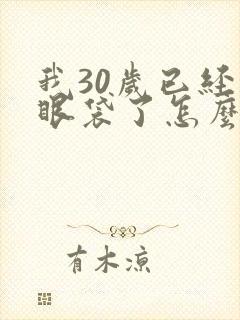 我30歲已經
眼袋了怎麼
有木涼